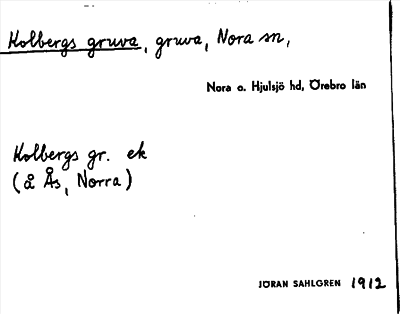 Kolbergs gruva, gruva, Nora sn,
Nora o. Hjulsjö hd, Örebro län
Kolbergs gr. ek
(å Ås, Norra)
JÖRAN SAHLGREN 1912